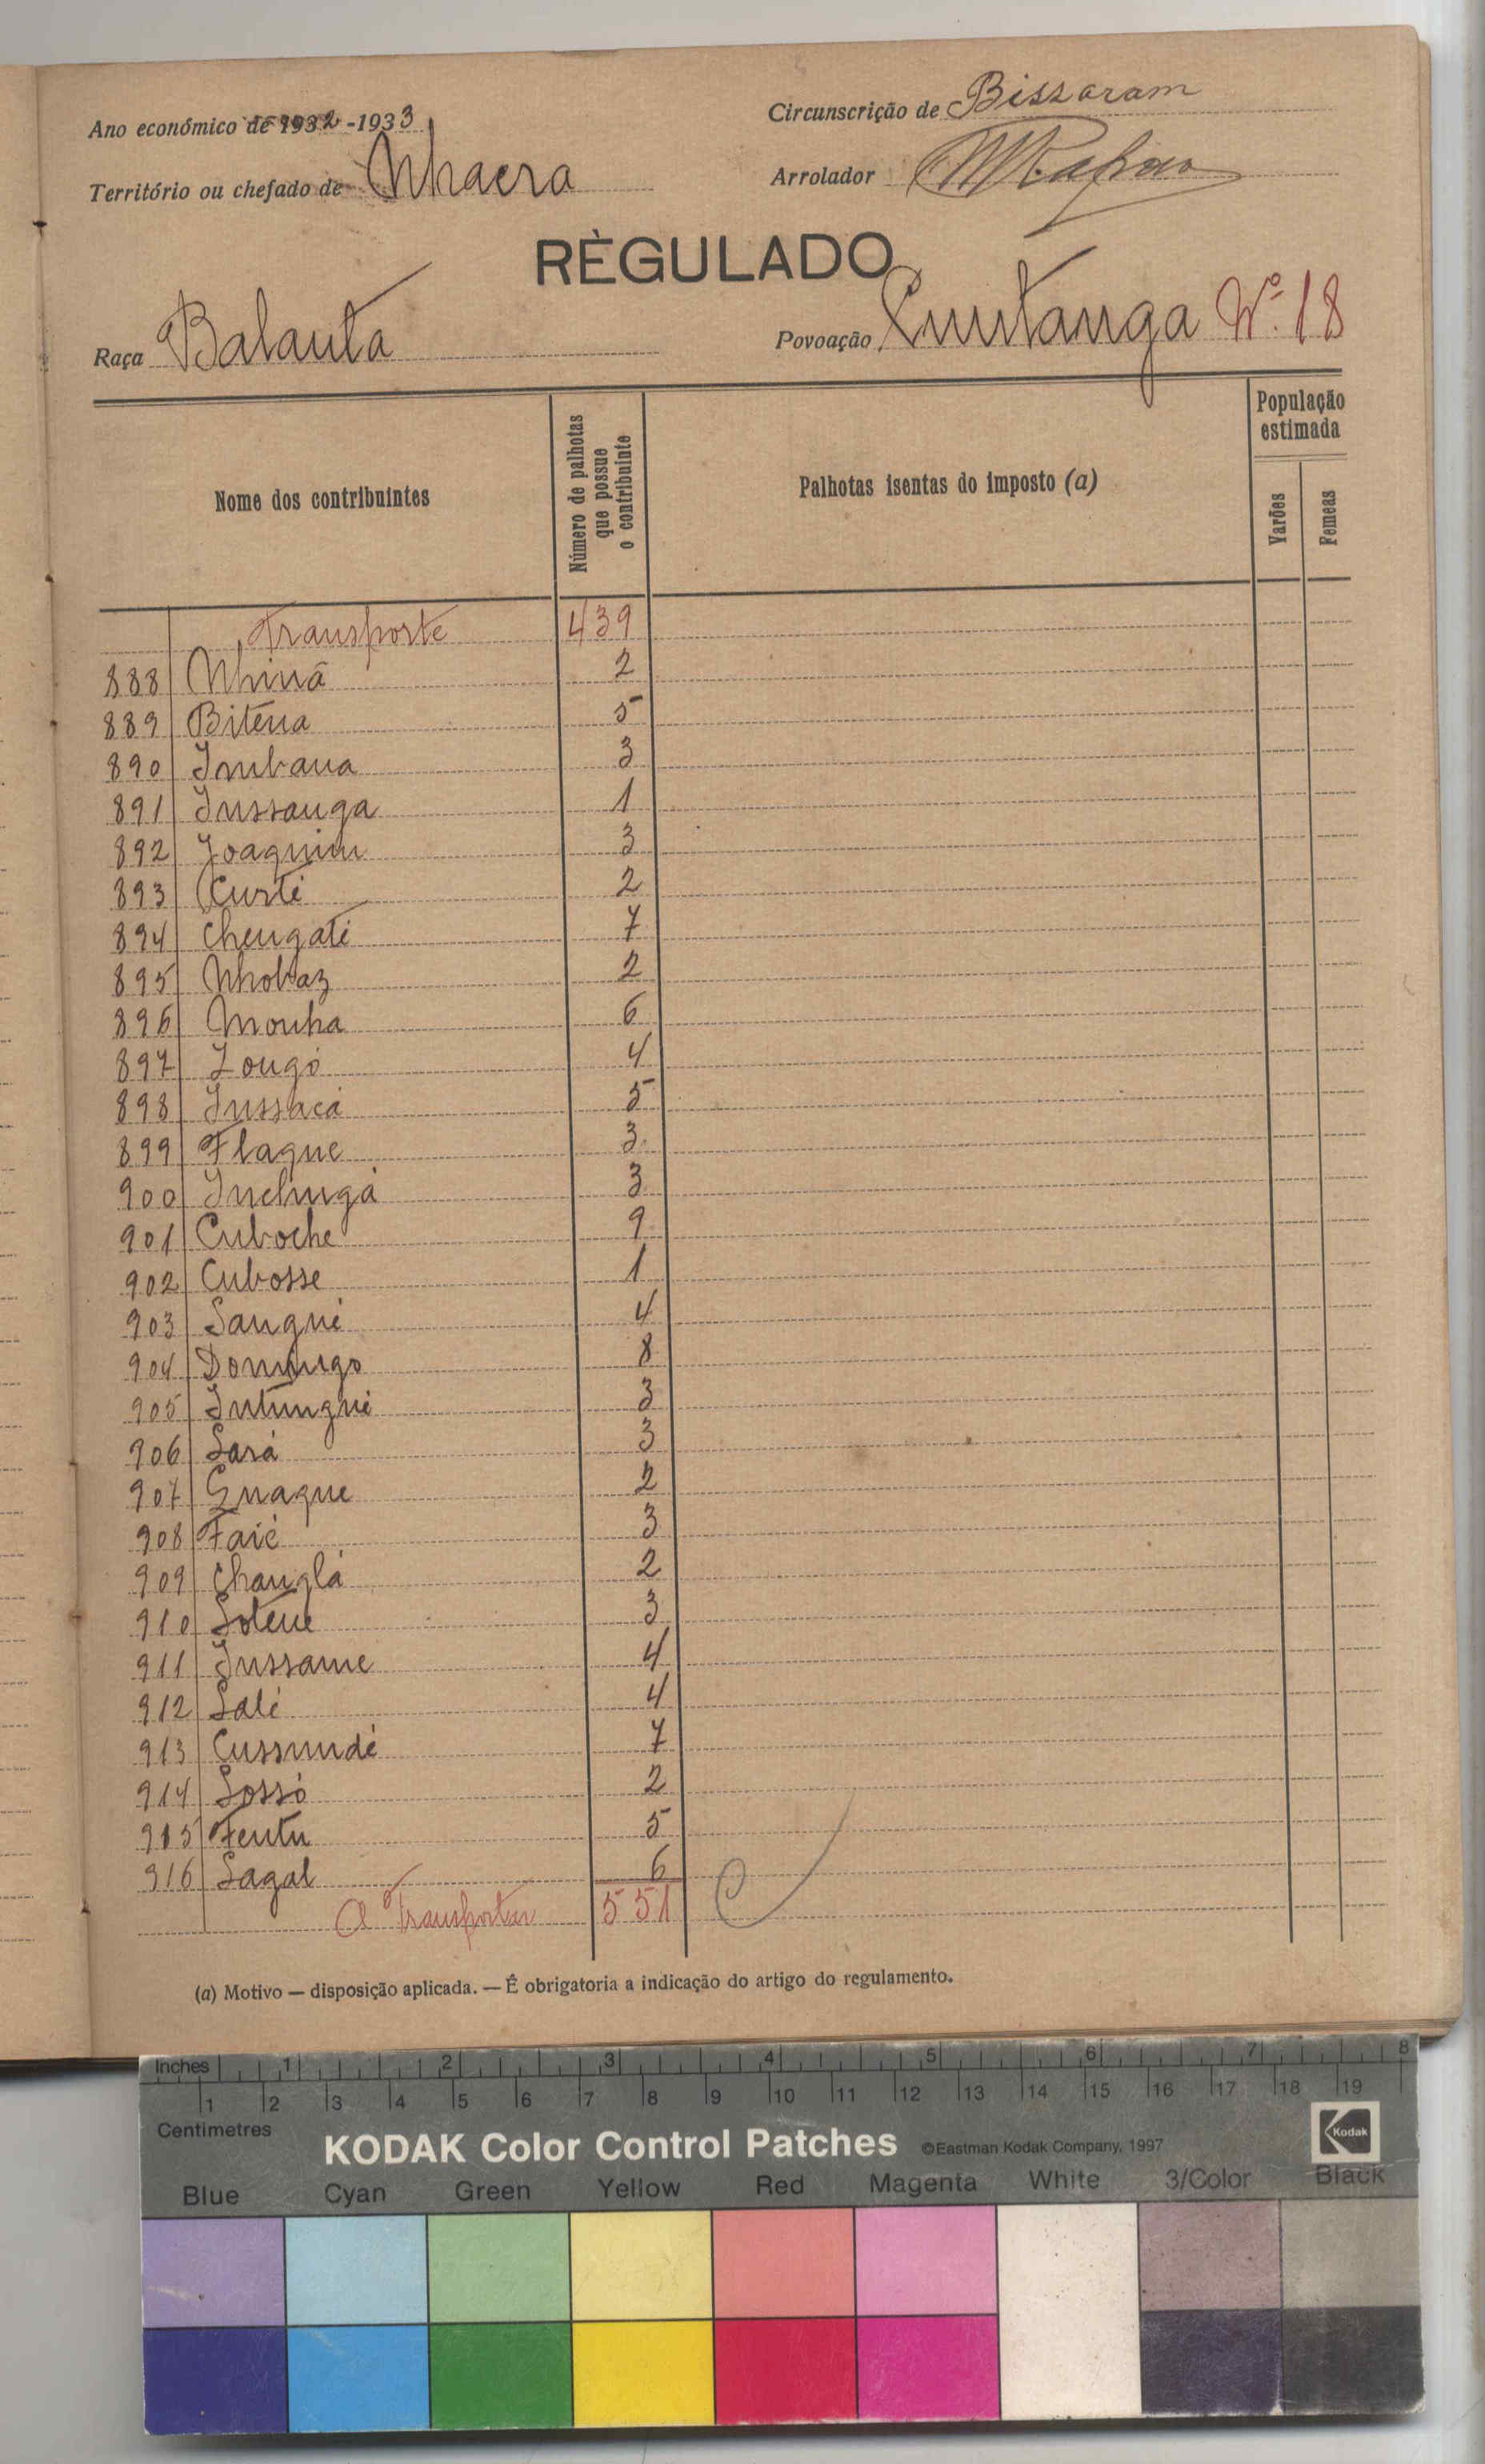 Ano económico de 1932-1933
Circunscrição de Bissoram
Território ou chefado de Nhaera
Arrolador
RÈGULADO
Raça Balanta
Povoação Quintanga Nº 18
Nome dos contribuintes
Número de palhotas que possue o contribuinte
Palhotas isentas do imposto (a)
População estimada
Varões
Femeas
Transporte 439
888 Nhinã 2
889 Biténa 5
890 Imbana 3
891 Inssanga 1
892 Joaquim 3
893 Curté 2
894 Chengaté 7
895 Nhobaz 2
896 Monha 6
897 Longó 4
898 Inssacá 5
899 Flaque 3
900 Inchugá 3
901 Cuboche 9
902 Cubosse 1
903 Sangué 4
904 Domingo 8
905 Intungué 3
906 Sará 3
907 Gnaque 2
908 Faié 3
909 Changlá 2
910 Soténe 3
911 Inssame 4
912 Salé 4
913 Cussundé 7
914 Sossó 2
915 Fentu 5
916 Sagal 6
A Transportar 551
(a) Motivo — disposição aplicada. — É obrigatoria a indicação do artigo do regulamento.
Inches 1 2 3 4 5 6 7 8
1 2 3 4 5 6 7 8 9 10 11 12 13 14 15 16 17 18 19
Centimetres
KODAK Color Control Patches ©Eastman Kodak Company, 1997 Kodak
Blue Cyan Green Yellow Red Magenta White 3/Color Black